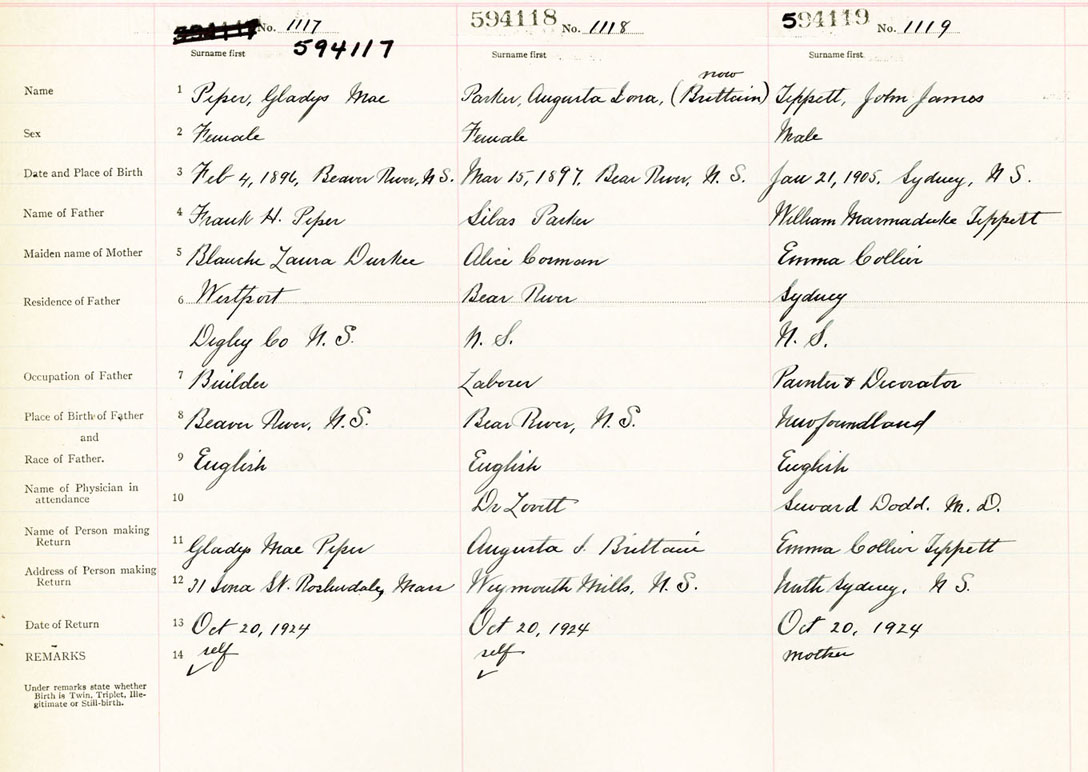 No. 1117 594118 No. 1118 594119 No. 1119
Surname first 594117 Surname first Surname first
now
Name 1 Piper, Gladys Mae Parker, Augusta Iona, (Brittain) Tippett, John James
Sex 2 Female Female Male
Date and Place of Birth 3 Feb 4, 1896, Beaver River, N.S. Mar 15, 1897, Bear River, N. S. Jan 21, 1905. Sydney, N S.
Name of Father 4 Frank H. Piper Silas Parker William Marmaduke Tippett
Maiden name of Mother 5 Blanche Laura Durkee Alice Corman Emma Collier
Residence of Father 6 Westport Bear River Sydney
Digby Co N. S. N. S. N. S.
Occupation of Father 7 Builder Laborer Painter & Decorator
Place of Birth of Father 8 Beaver River, N.S. Bear River, N. S. Newfoundland
and
Race of Father. 9 English English English
Name of Physician in
attendance 10 Dr Lovitt Seward Dodd. M. D.
Name of Person making
Return 11 Gladys Mae Piper Augusta I. Brittain Emma Collier Tippett
Address of Person making
Return 12 31 Iona St. Roslindale, Mass Weymouth Mills, N. S. North Sydney, N S.
Date of Return 13 Oct 20, 1924 Oct 20, 1924 Oct 20, 1924
REMARKS 14 self self mother
Under remarks state whether
Birth is Twin, Triplet, Ille-
gitimate or Still-birth.